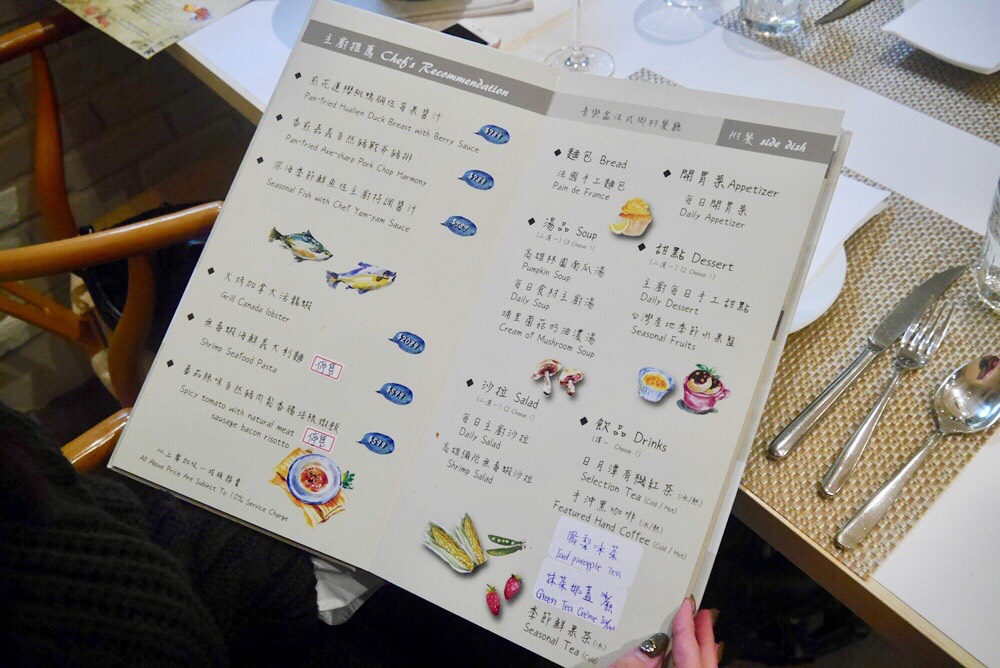 主廚推薦 Chef's Recommendation
煎花蓮櫻桃鴨胸佐莓果醬汁
Pan-fried Hualien Duck Breast with Berry Sauce
香煎嘉義自然豬戰斧豬排
Pan-fried Axe-sharp Pork Chop Harmony
$989
深海季節鮮魚佐主廚特調醬汁
Seasonal Fish with Chef Yam-yam Sauce
火烤加拿大活龍蝦
Grill Canada lobster
$2089
無毒蝦海鮮義大利麵
Shrimp Seafood Pasta
$599
番茄辣味自然豬肉鬆香腸培根燉飯
Spicy tomato with natural meat
sausage bacon risotto
$599
以上需加收一成服務費
All Above Price Are Subject To 10% Service Charge
音樂盒法式鄉村餐廳
附餐 side dish
麵包 Bread
法國手工麵包
Pain de France
湯品 Soup
(三選一) (3 Choose 1)
高雄杉園南瓜湯
Pumpkin Soup
每日食材主廚湯
Daily Soup
埔里菌菇奶油濃湯
Cream of Mushroom Soup
沙拉 Salad
(二選一) (2 Choose 1)
每日主廚沙拉
Daily Salad
高雄彌陀無毒蝦沙拉
Shrimp Salad
開胃菜 Appetizer
每日開胃菜
Daily Appetizer
甜點 Dessert
(二選一) (2 Choose 1)
主廚每日手工甜點
Daily Dessert
台灣產地季節水果盤
Seasonal Fruits
飲品 Drinks
(擇一 Choose 1)
日月潭有機紅茶 (冰/熱)
Selection Tea (Cold / Hot)
手沖黑咖啡 (冰/熱)
Featured Hand Coffee (Cold / Hot)
鳳梨冰茶
Iced pineapple Tea
抹茶奶蓋 冰/熱
Green Tea Crème
季節鮮果茶 (冰)
Seasonal Tea (Cold)